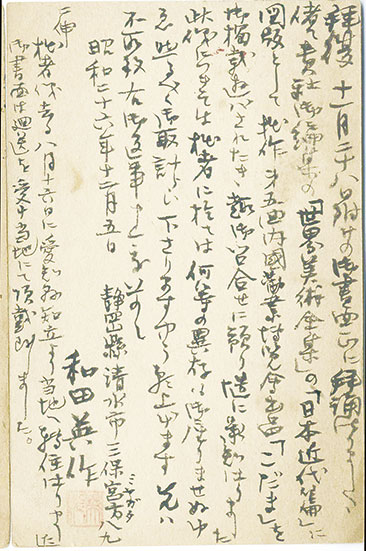 拝復 十一月二十八日附けの御書面正に拝誦仕りました
偖て貴社御編集の「世界美術全集」の「日本近代篇」に
図版として拙作 第五回内國勧業博覧会出品「こだま」を
御掲載 されたき趣御問合せに預り 承知仕りました
此儀につきましては拙者に於ては何等の異存は御座りませぬ
御取計らい下さりますやう 上げます 先は
不取敢右御返事 草々
昭和二十六年十二月五日
静岡縣清水市三保宮方 九
ミヤカタ
和田英作
二伸
拙者儀去る八月十六日に愛知縣知立より当地 轉住仕りました
御書面は廻送を受け当地にて頂戴 ました。